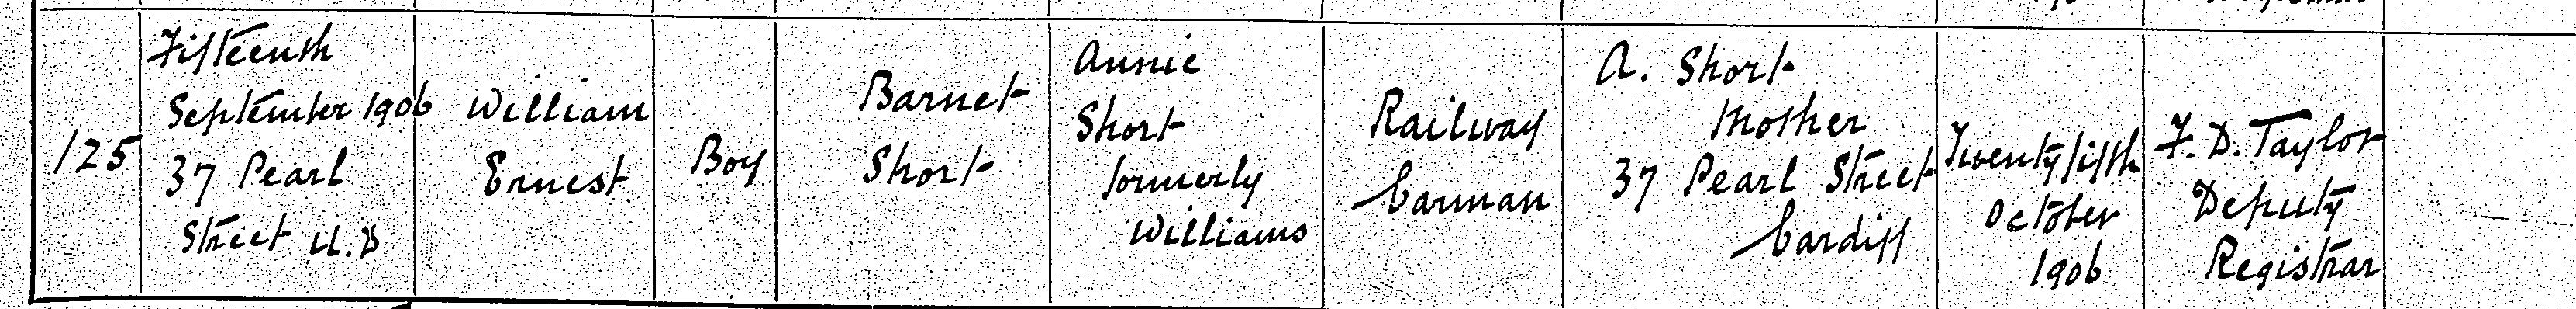 125
Fifteenth
September 1906
37 Pearl
Street U.D
William
Ernest
Boy
Barnet
Short
Annie
Short
formerly
Williams
Railway
Carman
A. Short
Mother
37 Pearl Street
Cardiff
Twenty fifth
October
1906
F. D. Taylor
Deputy
Registrar